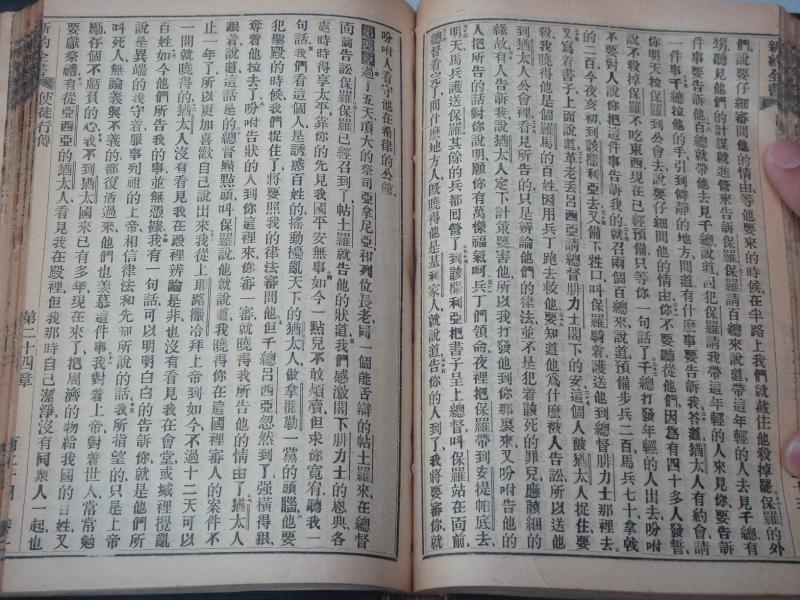 新約全書
們說要仔細審問他的情由等他要來的時候在半路上我們就藏住他殺掉罷保羅的外
甥聽見他們的計謀就進營來告訴保羅保羅請百總來說道帶這年輕的人去見千總有
一件事要告訴他百總就帶他去見千總說道囚犯保羅請我帶這年輕的人來見你要告訴
你明天拉保羅到公會去說要仔細問他的情由你不要聽從他們因為有四十多人發誓
說不殺掉保羅不吃東西現在已經預備只等你一句話了千總打發年輕的人出去吩咐
不要對人說你把這件事告訴我的就召兩個百總來說道預備步兵二百馬兵七十拿戟
的二百今夜亥初到該撒利亞去又備下牲口叫保羅騎着護送他到總督腓力士那裡去
又寫着書子上面說道革老丟呂西亞請總督腓力士閣下的安這個人被猶太人捉住要
殺我曉得他是個羅馬的百姓因用兵丁跑去救他要知道他為什麼被人告訟所以送他
到猶太人公會裡看見所告的只是辨論他們的律法並不是犯着該死的罪兒應該綑的
緣故有人告訴我說猶太人定下計策要害他所以我打發他到你那裏來又吩咐告他的
人把所告的話對你說明願你有萬樣福氣呵兵丁們領命夜裡把保羅帶到安提帕底去
明天馬兵護送保羅其餘的兵都回營了到該撒利亞把書子呈上總督叫保羅站在面前
總督看完了問什麼地方人既曉得他是基利家人就說道告你的人到了我將要審你就
吩咐人看守他在希律的公館
過了五天頂大的祭司亞拿尼亞和列位長老同一個能舌辯的帖土羅來在總督
面前告訟保羅保羅已經召到了帖土羅就告他的狀道我們感激閣下腓力士的恩典各
處時時得享太平靠你的先見我國平安無事如今一點兒不敢煩瀆但求你寬宥聽我一
句話我們看這個人是誘惑百姓的搖動擾亂天下的猶太人做拿撒勒一黨的頭腦他要
犯聖殿的時候我們捉住了將要照我的律法審問他但千總呂西亞忽然到了強橫得狠
奪着他拉去了吩咐告狀的人到你這裡來你審一審就曉得我所告他的情由了猶太人
跟着說道這話是的總督點點頭叫保羅說他就說道我曉得你在這國裡審人的案件不
止一年了所以更加喜歡自己說出來我從上耶路撒冷拜上帝到如今不過十二天可以
一問就曉得的猶太人沒有看見我在殿裡辨論是非也沒有看見我在會堂或城裡攪亂
百姓如今他們所告我的事並無憑據我有一句話可以明明白白的告訴你就是他們所
說是異端的我守着服事列祖的上帝相信律法和先知所說的話我所指望的只是上帝
叫死人無論義與不義的都復活過來他們也羨慕這件事我對着上帝對着世人當當勉
勵存個不虧負的心我不到猶太國來已有多年現在來了把周濟的物給我國的百姓又
要獻祭禮有從亞西亞的猶太人看見我在殿裡但我那時自己潔淨沒有同衆人一起也
新約全書 使徒行傳 第二十四章